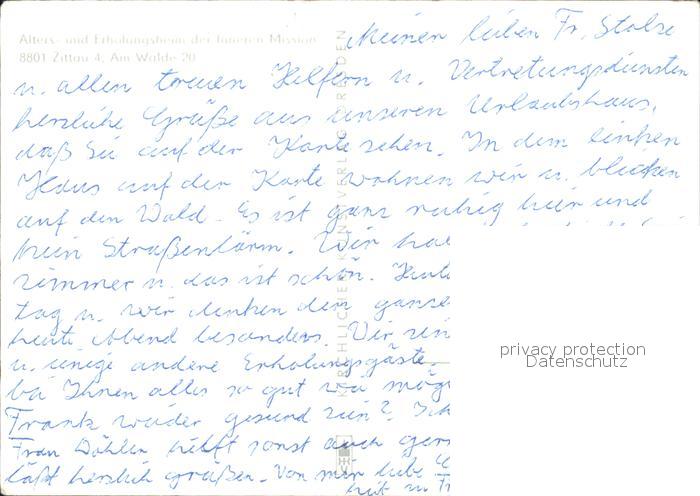 Alters- und Erholungsheim der Inneren Mission
8801 Zittau 4, Am Walde 20
Meinen lieben Fr. Stolze
u. allen treuen Helfern u. Vertretungsdiensten
herzliche Grüße aus unseren Urlaubshaus,
daß Sie auf der Karte sehen. In dem linken
Haus auf der Karte wohnen wir u. blicken
auf den Wald. Es ist ganz ruhig hier und
kein Straßenlärm. Wir
zimmer u. das ist schön.
tag u. wir denken dem ganze
heute Abend besonders. Wir
u. einige andere Erholungsgäste
bei Ihnen alles so gut
Frank wieder gesund sein?
Frau Döhler hilft sonst auch
läßt herzlich grüßen. Von mir liebe
KIRCHLICHER KUNSTVERLAG DRESDEN
privacy protection
Datenschutz